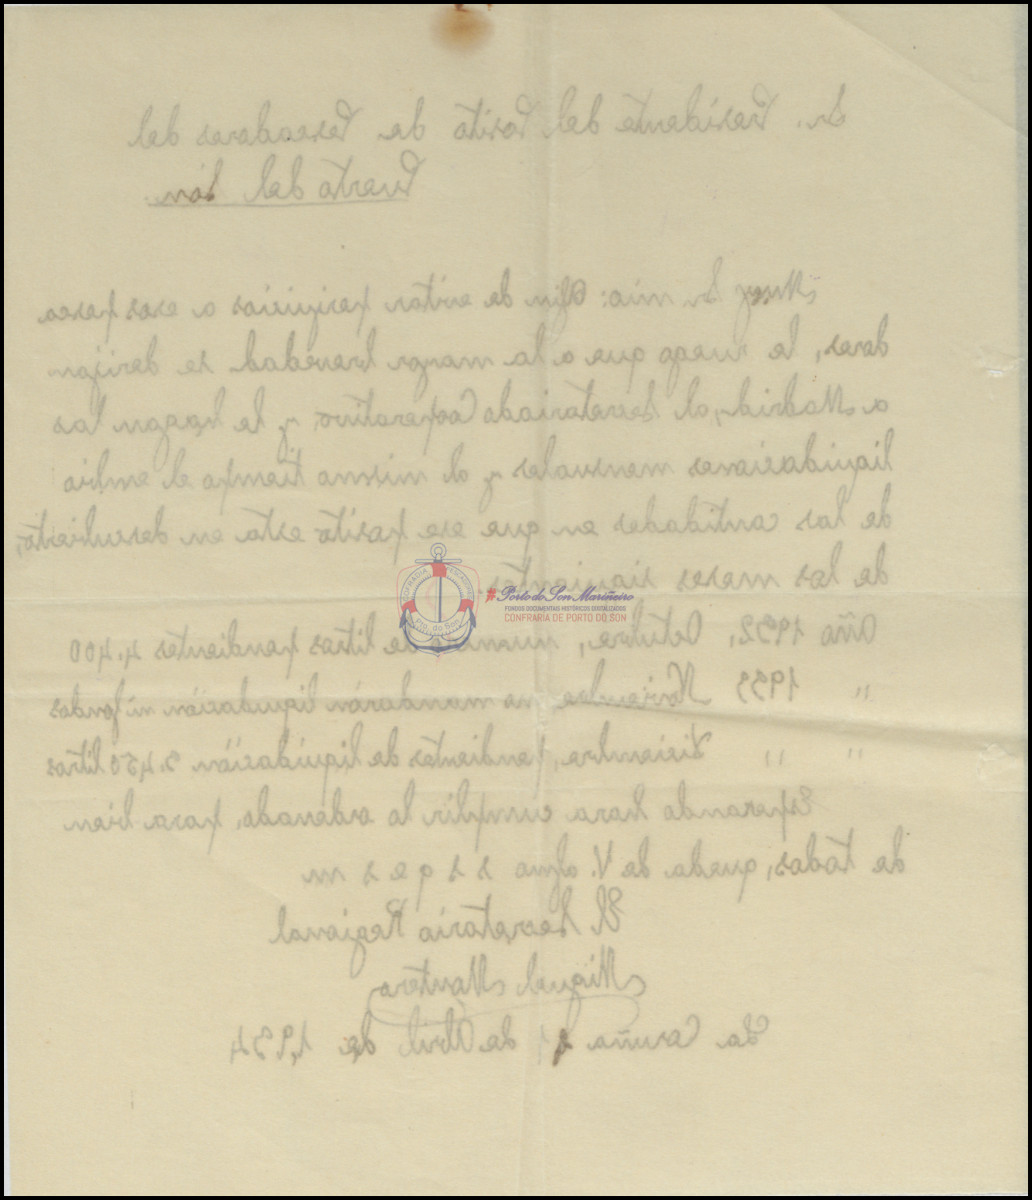 Sr. Presidente del Posito de Pescadores del
Puerto del Són.
Muy Sr mio: Afin de evitar perjuicios a esos pesca
dores, le ruego que a la mayor brevedad se dirijan
a Madrid, al Secretariado Cooperativo, y le hagan las
liquidaciones mensuales y al mismo tiempo el embio
de las cantidades en que ese posito esta en descubierto,
de los meses siguientes.
Año 1932, Octubre, numero de litros pendientes 4.400
" 1933 Noviembre no mandarón liquidación ni fondos
" " Diciembre, pendientes de liquidación 3.450 litros
Esperando hara cumplir lo ordenado, para bien
de todos, queda de V. afmo s s q e s m
El Secretario Regional
Miguel Montero
La Coruña de Abril de 1,934
COFRADIA PESCADORES
Pto. do Son
#Porto do Son Mariñeiro
FONDOS DOCUMENTAIS HISTÓRICOS DIXITALIZADOS
CONFRARIA DE PORTO DO SON